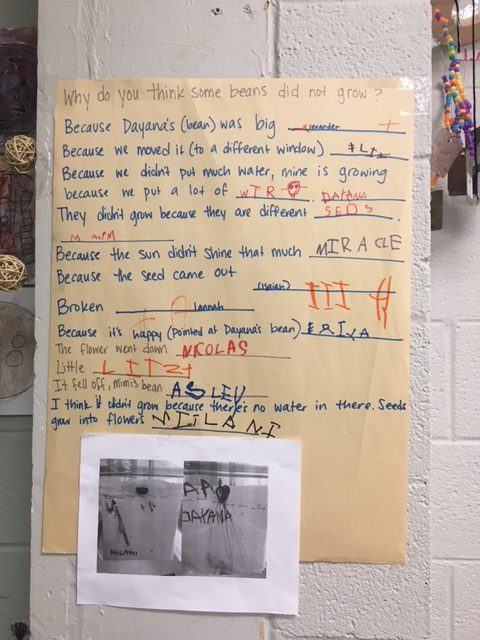 Why do you think some beans did not grow?
Because Dayana's (bean) was big
Because we moved it (to a different window)
Because we didn't put much water, mine is growing
because we put a lot of WTR DAYANA
They didn't grow because they are different SEDS.
Because the sun didn't shine that much MIRACLE
Because the seed came out
(Isaian) III
Broken Lannah
Because it's happy (Pointed at Dayana's bean)
The flower went down NICOLAS
Little
It fell off, mimi's bean
I think it didn't grow because there's no water in there. Seeds
grow into flowers MILANI
MILANI
DAYANA